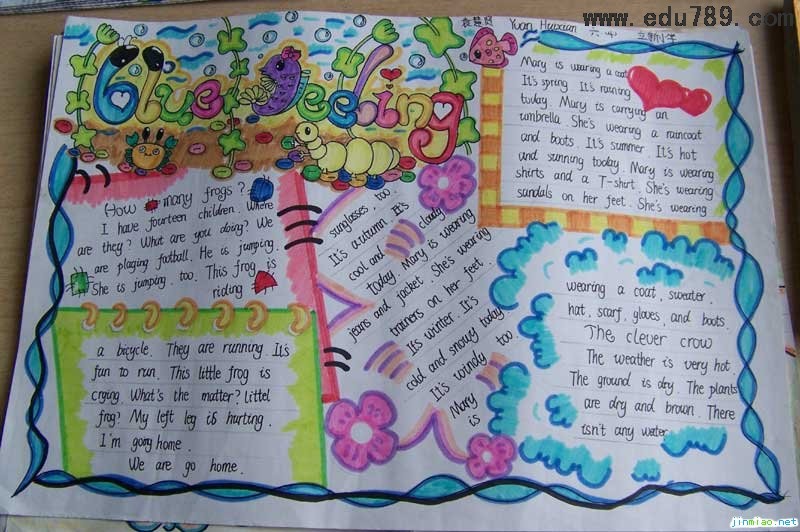 www.edu789.com
Blue Feeling
Yuan Huixian
Mary is wearing a coat
It's spring. It's raining
today. Mary is carrying an
umbrella. She's wearing a raincoat
and boots. It's summer. It's hot
and sunning today. Mary is wearing
shirts and a T-shirt. She's wearing
sandals on her feet. She's wearing
How many frogs?
I have fourteen children. Where
are they? What are you doing? We
are playing football. He is jumping.
She is jumping. too. This frog is
riding
a bicycle. They are running. It's
fun to run. This little frog is
crying. What's the matter? Littel
frog? My left leg is hurting.
I'm gong home.
We are go home.
sunglasses, too.
It's autumn. It's
cool and cloudy
today. Mary is wearing
jeans and jacket. She's wearing
trainers on her feet.
It's winter. It's
cold and snowy today.
It's windy too.
Mary
is
wearing a coat, sweater.
hat, scarf, gloves, and boots.
The clever crow
The weather is very hot.
The ground is dry. The plants
are dry and brown. There
isn't any water.
jinmiao.net